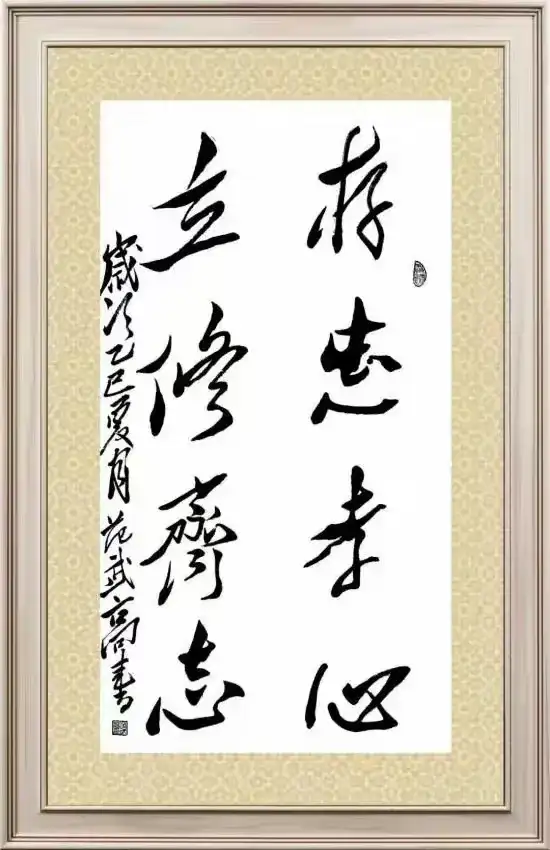 存忠孝心
立修齊志
歲次乙巳夏月范武高書